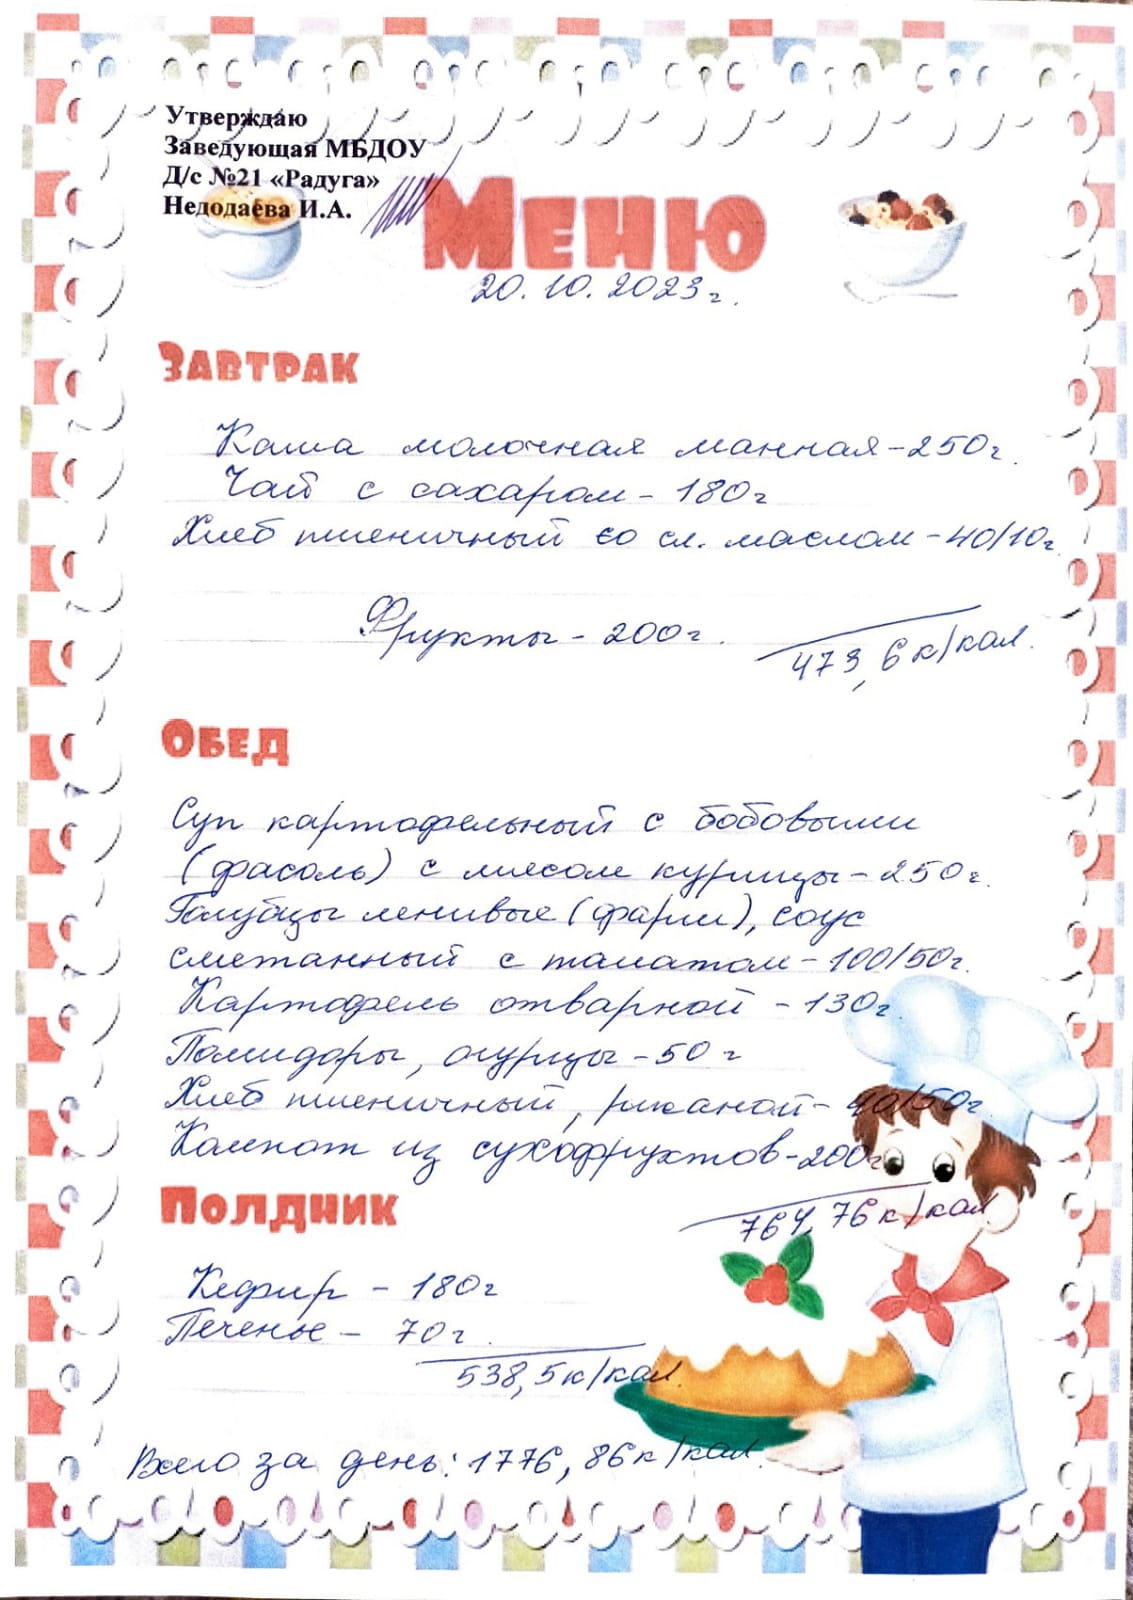 Утверждаю
Заведующая МБДОУ
Д/с №21 «Радуга»
Недодаева И.А.
Меню
20.10.2023г.
Завтрак
Каша молочная манная-250г.
Чай с сахаром-180г
Хлеб пшеничный со сл. маслом-40/10г.
Фрукты-200г.
473,6к/кал.
Обед
Суп картофельный с бобовыми
(фасоль) с мясом курицы-250г.
Голубцы ленивые (фарш), соус
сметанный с томатом-100/50г.
Картофель отварной-130г.
Помидоры, огурцы-50г
Хлеб пшеничный, ржаной-40/50г.
Компот из сухофруктов-200г
764,76к/кал
Полдник
Кефир - 180г
Печенье - 70г.
538,5к/кал.
Всего за день: 1776,86к/кал.